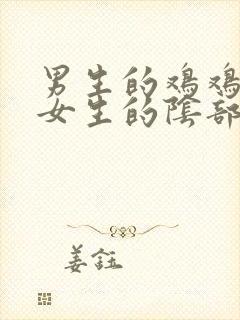 男生的鸡鸡
女生的陰部
姜鈺